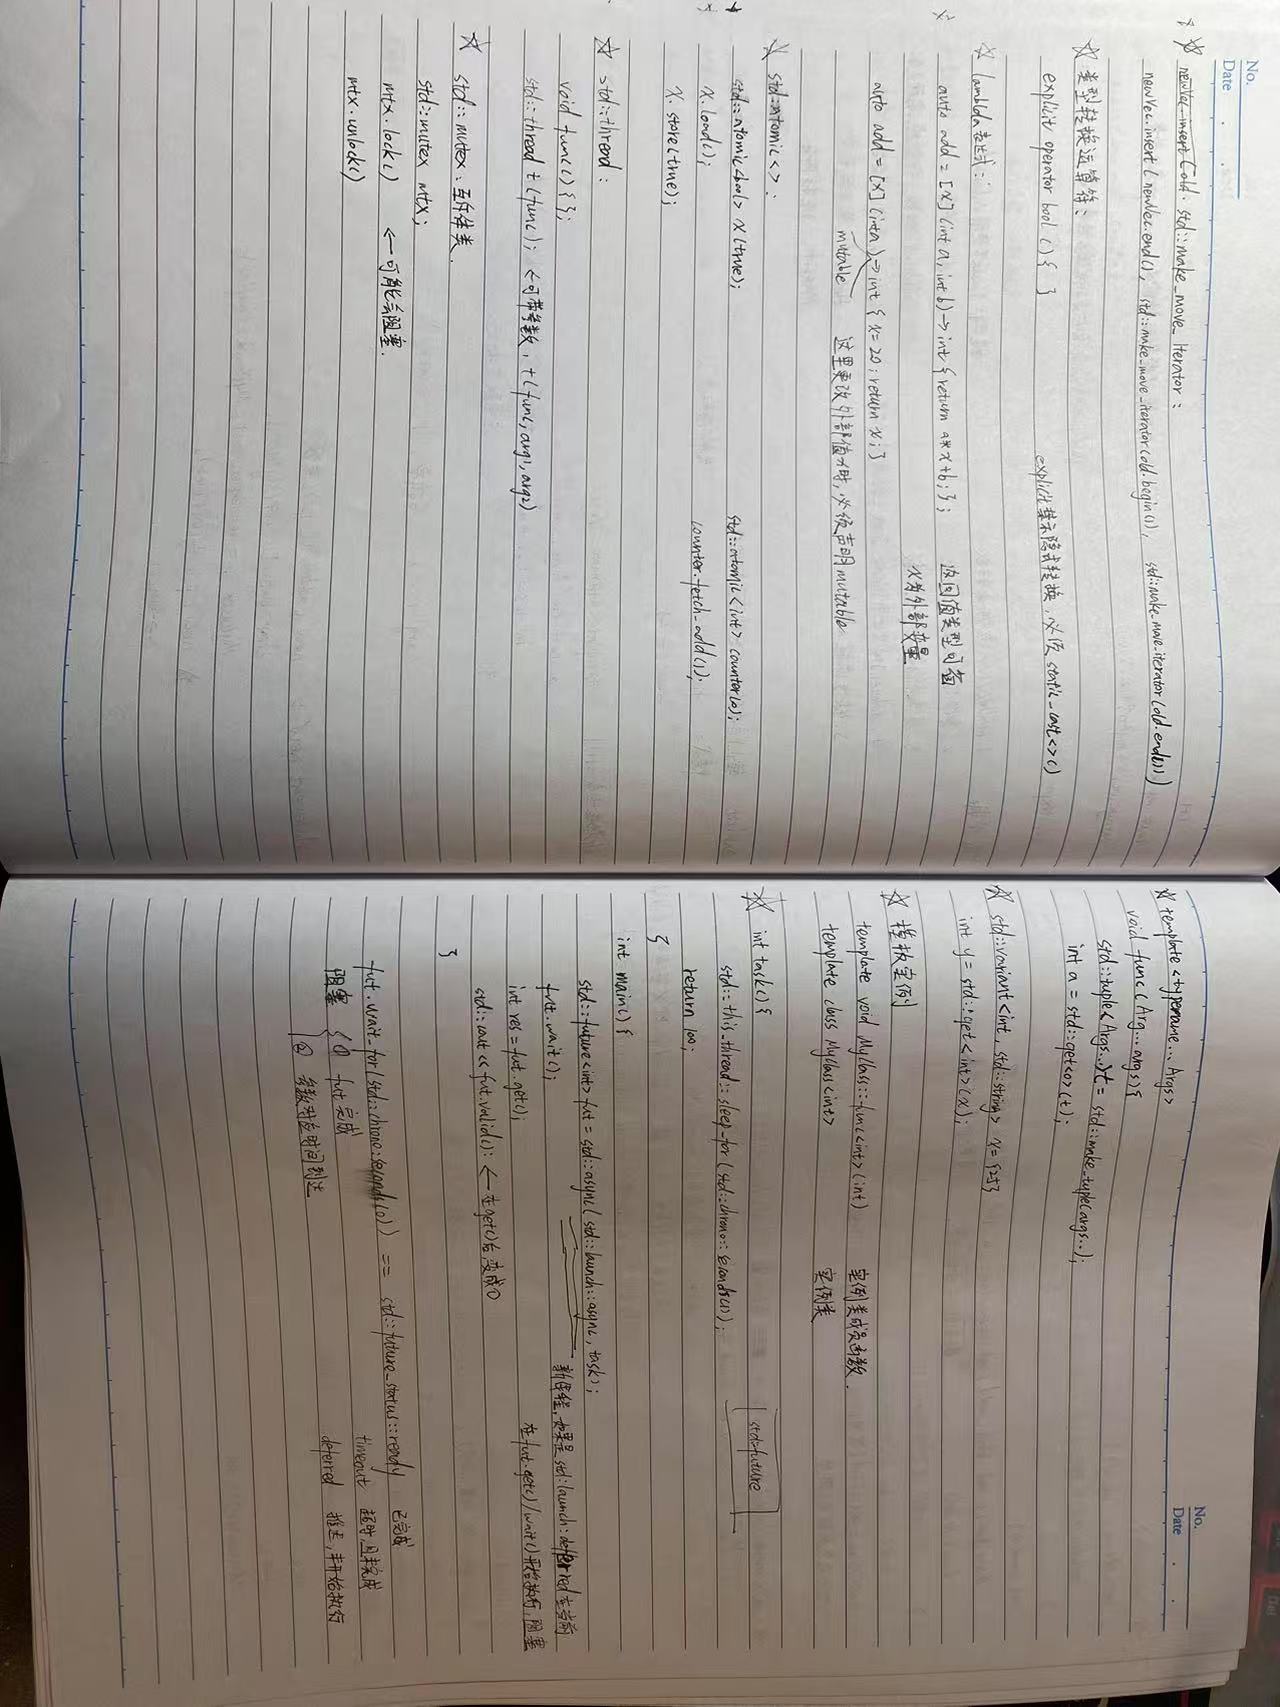 No.
Date
☆ std::make_move_iterator:
newVec.insert(newVec.end(), std::make_move_iterator(old.begin()), std::make_move_iterator(old.end()))
☆ 类型转换运算符:
explicit operator bool () { } explicit禁示隐式转换，必须 static_cast<>()
☆ lambda表达式:
auto add = [x](int a, int b)->int{return a*x+b;}; 返回值类型可省
x为外部变量
auto add = [x](int a)->int{x=20; return x;}
mutable 这里更改外部值x时，必须声明mutable
☆ std::atomic<>:
std::atomic<bool> x(true); std::atomic<int> counter(0);
x.load(); counter.fetch_add(1);
x.store(true);
☆ std::thread:
void func(){};
std::thread t(func); ←可带参数，t(func,arg1,arg2)
☆ std::mutex:互斥体类.
std::mutex mtx;
mtx.lock() ←可能会阻塞.
mtx.unlock()
No.
Date
☆ template <typename... Args>
void func(Arg... args){
std::tuple<Args...>t = std::make_tuple(args...);
int a = std::get<0>(t);
☆ std::variant<int, std::string> x={25}
int y = std::get<int>(x);
☆ 模板实例
template void MyClass::func<int>(int) 实例类成员函数.
template class MyClass<int> 实例类
☆ int task(){ std::future
std::this_thread::sleep_for(std::chrono::seconds(1));
return 100;
}
int main(){
std::future<int> fut = std::async(std::launch::async, task);
fut.wait(); 新线程, 如果是std::launch::deferred在当前
int res = fut.get(); 在fut.get()/wait()开始执行,阻塞
std::cout << fut.valid(); ←在get()后变成0
}
fut.wait_for(std::chrono::seconds(0)) == std::future_status::ready 已完成
阻塞 { ① fut完成 timeout 超时,且未完成
② 参数对应时间到达 deferred 推迟,未开始执行